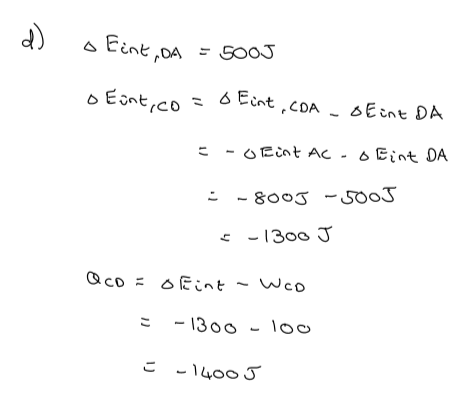 d) Δ Eint,DA = 500J
Δ Eint,CD = Δ Eint,CDA - Δ Eint DA
= - Δ Eint AC - Δ Eint DA
= - 800J - 500J
= - 1300 J
QCD = Δ Eint - WCD
= - 1300 - 100
= - 1400 J